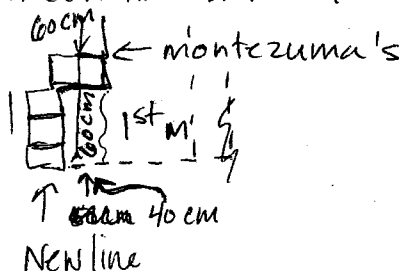 60cm
← montezuma's
60cm
1st M
40 cm
New line